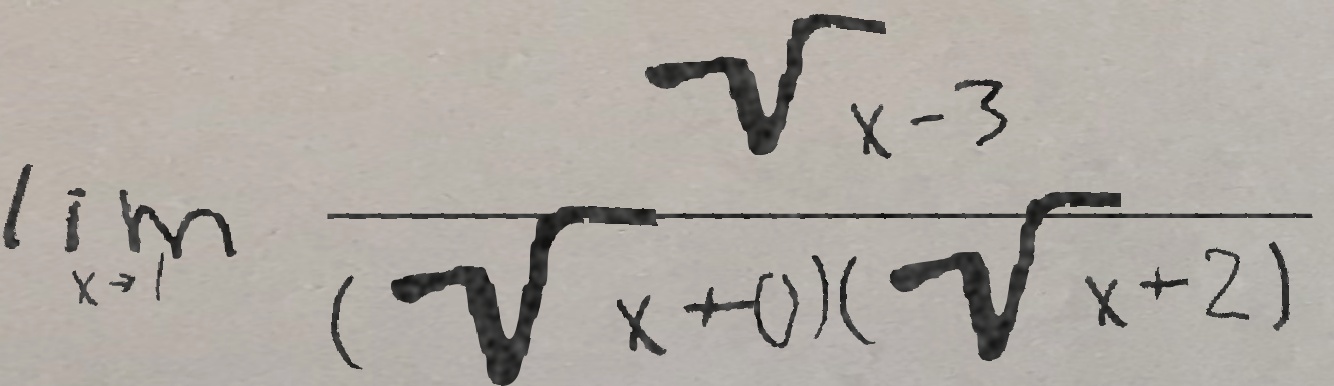 lim_{x → 1} \frac{\sqrt{x} - 3}{(\sqrt{x} + 0)(\sqrt{x} + 2)}